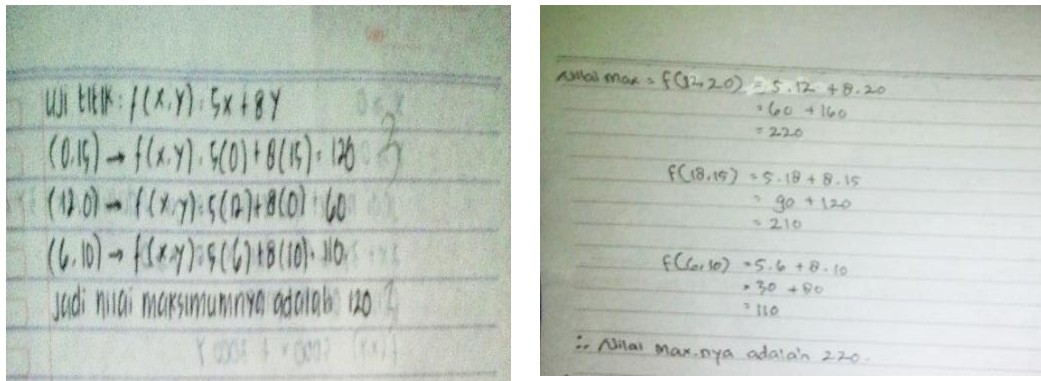 Uji titik : f(x,y) = 5x + 8y
(0,15) → f(x,y) = 5(0) + 8(15) = 120
(12,0) → f(x,y) = 5(12) + 8(0) = 60
(6,10) → f(x,y) = 5(6) + 8(10) = 110
Jadi nilai maksimumnya adalah 120
Nilai max = f(12,20) = 5.12 + 8.20
= 60 + 160
= 220
f(18,15) = 5.18 + 8.15
= 90 + 120
= 210
f(6,10) = 5.6 + 8.10
= 30 + 80
= 110
∴ Nilai max.nya adalah 220.